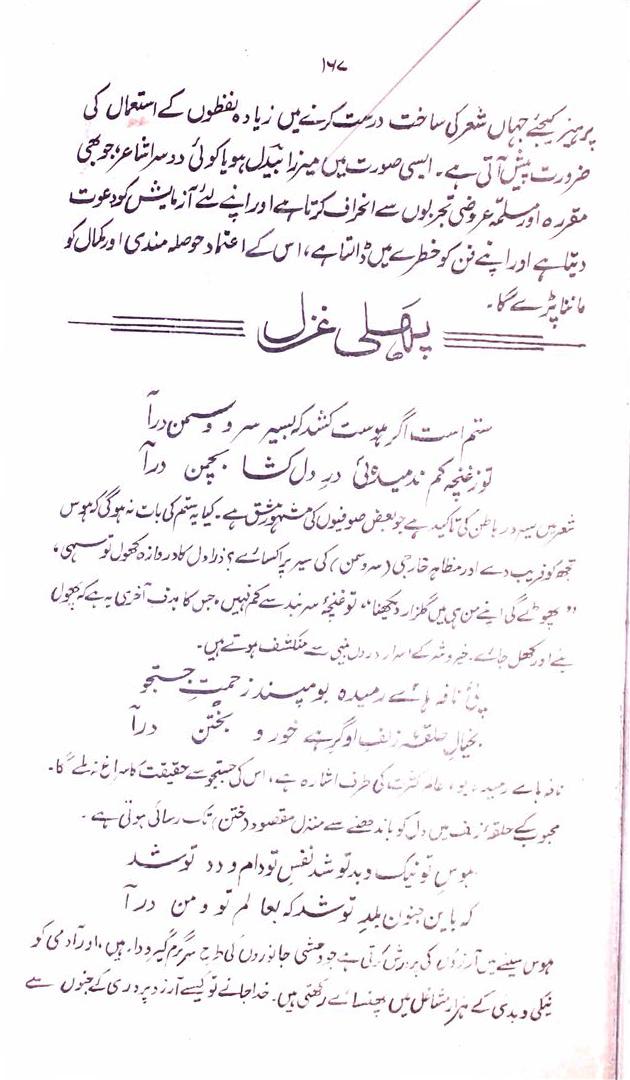 ۱۶۷
پرہیز کیجئے جہاں شعر کی ساخت درست کرنے میں زیادہ لفظوں کے استعمال کی
ضرورت پیش آتی ہے۔ ایسی صورت میں میرزا بیدل ہو یا کوئی دوسرا شاعر؛ جو بھی
مقررہ اور مسلمہ عروضی تجربوں سے انحراف کرتا ہے اور اپنے لئے آزمایش کو دعوت
دیتا ہے اور اپنے فن کو خطرے میں ڈالتا ہے، اس کے اعتماد حوصلہ مندی اور کمال کو
ماننا پڑے گا۔
پہلی غزل
ستم است اگر ہوست کشد کہ بسیر سرو و سمن درآ
تو ز غنچہ کم ندمیدۂ درِ دل کشا بچمن درآ
شعر میں سیر در باطن کی تاکید ہے جو بعض صوفیوں کی مشہور مشق ہے۔ کیا یہ ستم کی بات نہ ہو گی کہ ہوس
تجھ کو فریب دے اور مظاہر خارجی (سرو سمن) کی سیر پر اکسائے؟ ذرا دل کا دروازہ کھول تو سہی،
"پھوٹے گی اپنے من ہی میں گلزار دیکھنا"، تو غنچۂ سربند سے کم نہیں، جس کا ہدف آخری یہ ہے کہ پھول
بنے اور کھل جائے۔ خیر و شر کے اسرار دروں بینی سے منکشف ہوتے ہیں۔
پئی نافہ ہاے رمیدہ بو مپسند زحمتِ جستجو
بخیالِ حلقۂ زلفِ او گرہے خور و بختن درآ
نافہ ہاے رمیدہ بو، عالم کثرت کی طرف اشارہ ہے، اس کی جستجو سے حقیقت کا سراغ نہ ملے گا۔
محبوب کے حلقۂ زلف میں دل کو باندھنے سے منزل مقصود (ختن) تک رسائی ہوتی ہے۔
ہوسِ تو نیک و بدِ تو شد نفسِ تو دام و ددِ تو شد
کہ باین جنون بلدِ تو شد کہ بعالم تو و من درآ
ہوس سینے میں آرزوں کی پرورش کرتی ہے جو وحشی جانوروں کی طرح سرگرم گیر و دار ہیں، اور آدمی کو
نیکی و بدی کے ہزار مشاغل میں پھنسائے رکھتی ہیں۔ خدا جانے تو کیسے آرزو پروری کے جنوں سے